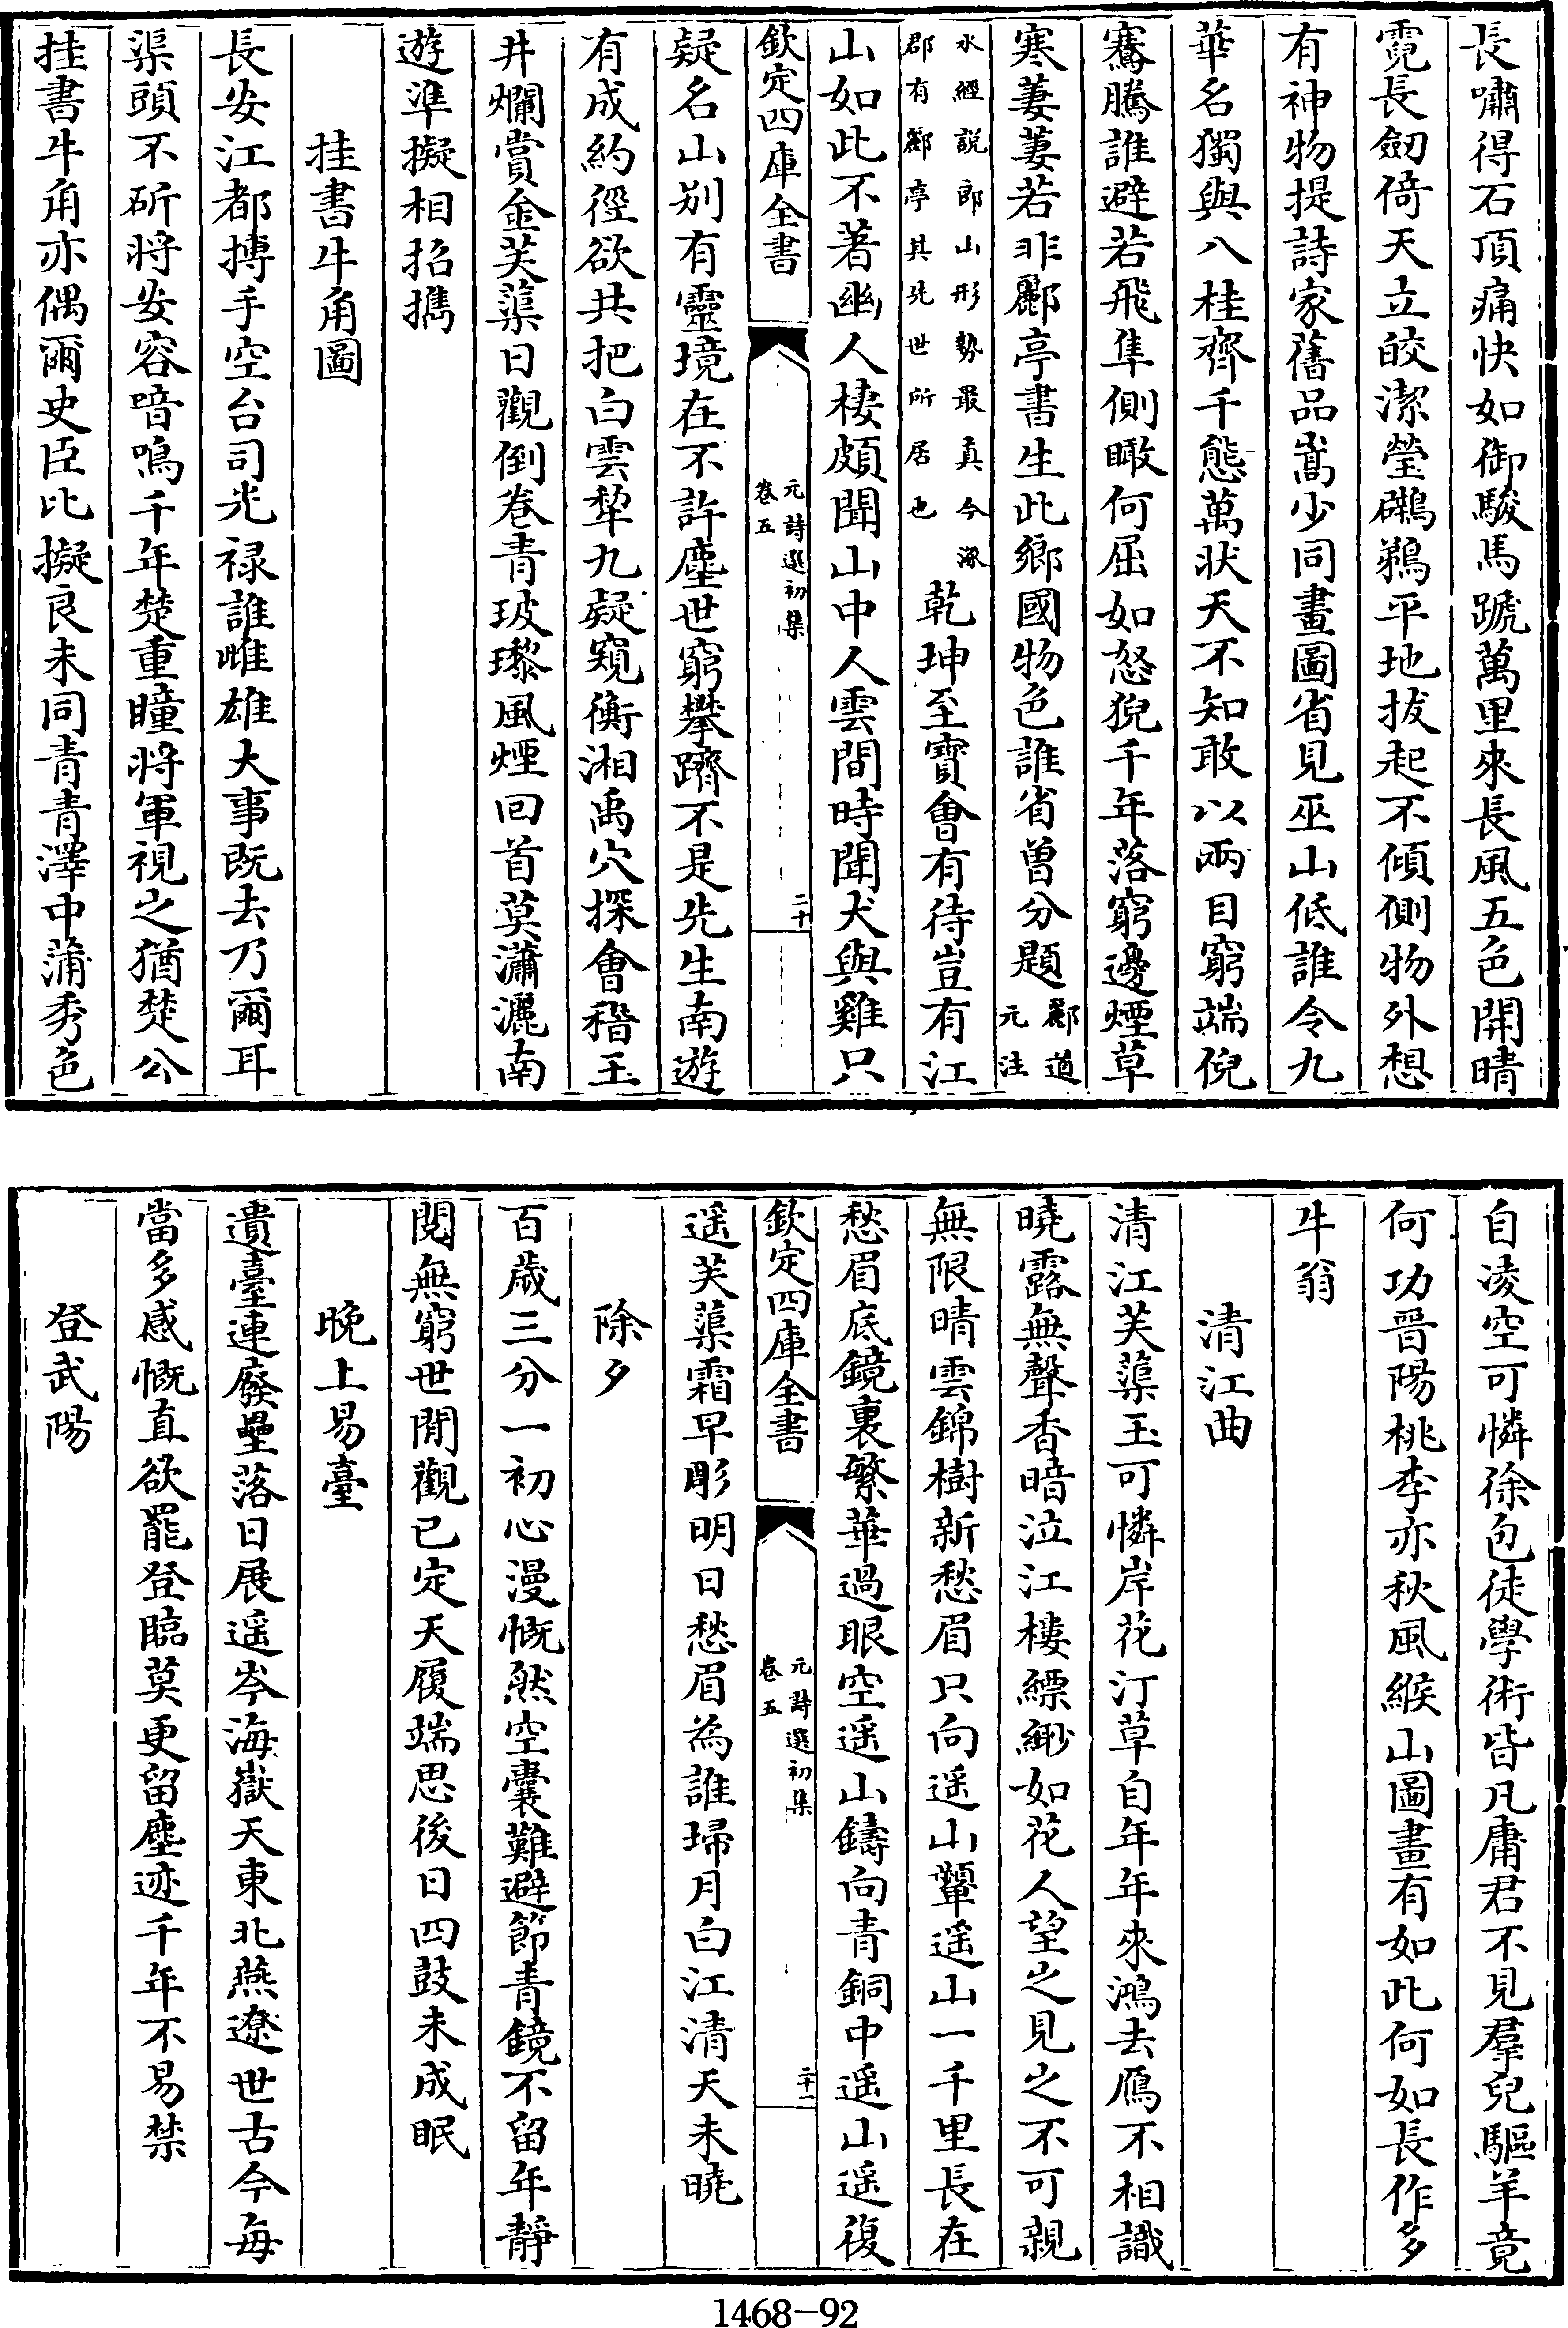 長嘯得石頂痛快如御駿馬蹏萬里來長風五色開晴
霓長劒倚天立皎潔瑩鸊鵜平地拔起不傾側物外想
有神物提詩家舊品嵩少同畫圖省見巫山低誰令九
華名獨與八桂齊千態萬狀天不知敢以兩目窮端倪
騫騰誰避若飛隼側瞰何屈如怒猊千年落窮邊煙草
寒萋萋若非酈亭書生此鄉國物色誰省曽分題
酈道
元注
水經說郎山形勢最真今涿
郡有酈亭其先世所居也
乾坤至寶會有待豈有江
山如此不著幽人棲頗聞山中人雲間時聞犬與雞只
欽定四庫全書
元詩選初集
卷五
二十
疑名山别有靈境在不許塵世窮攀躋不是先生南遊
有成約徑欲共把白雲犂九疑窺衡湘禹穴探會稽玉
井爛賞金芙蕖日觀倒卷青玻瓈風煙回首莫瀟灑南
遊準擬相招攜
挂書牛角圖
長安江都搏手空台司光祿誰雌雄大事既去乃爾耳
渠頭不斫將安容喑嗚千年楚重瞳將軍視之猶楚公
挂書牛角亦偶爾史臣比擬良未同青青澤中蒲秀色
自凌空可憐徐包徒學術皆凡庸君不見羣兒驅羊竟
何功晉陽桃李亦秋風緱山圖畫有如此何如長作多
牛翁
清江曲
清江芙蕖玉可憐岸花汀草自年年來鴻去鴈不相識
曉露無聲香暗泣江樓縹緲如花人望之見之不可親
無限晴雲錦樹新愁眉只向遥山顰遥山一千里長在
愁眉底鏡裏繁華過眼空遥山鑄向青銅中遥山遥復
欽定四庫全書
元詩選初集
卷五
二十一
遥芙蕖霜早彫明日愁眉為誰埽月白江清天未曉
除夕
百歲三分一初心漫慨然空囊難避節青鏡不留年靜
閱無窮世閒觀已定天履端思後日四鼓未成眠
晚上易臺
遺臺連廢壘落日展遥岑海嶽天東北燕遼世古今每
當多感慨直欲罷登臨莫更留塵迹千年不易禁
登武陽
1468-92